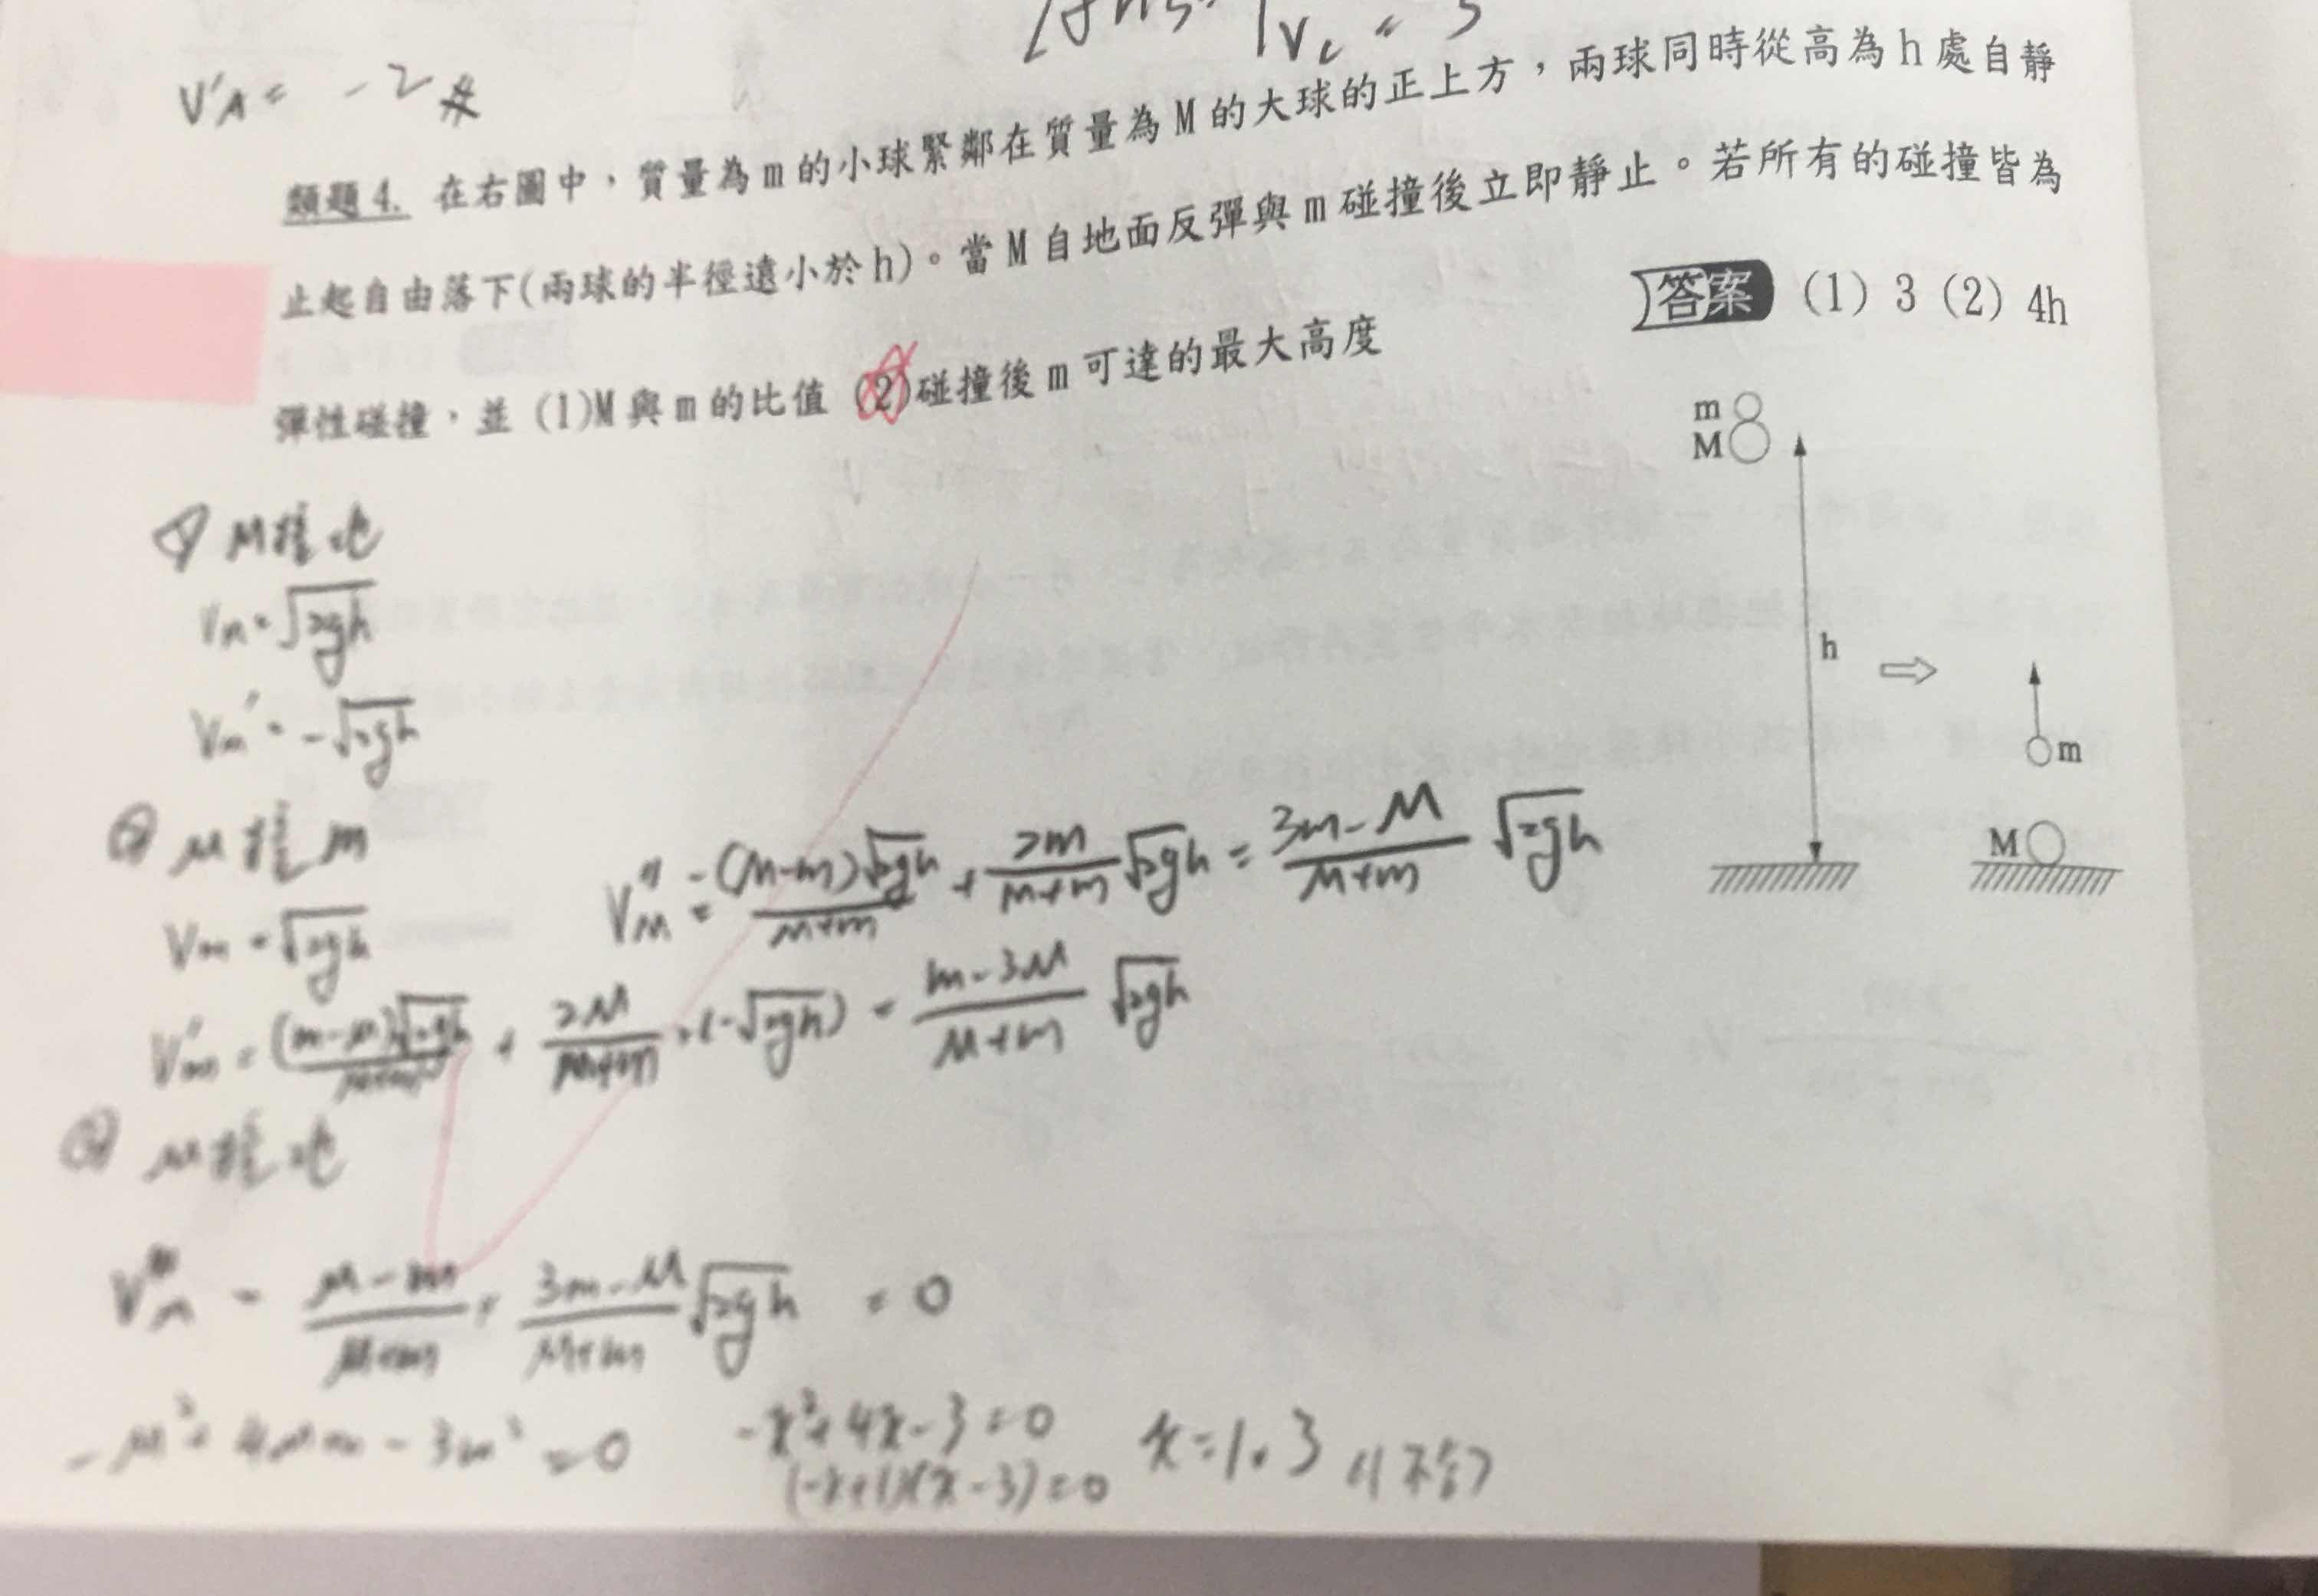 V'A = -2 #
類題4. 在右圖中，質量為m的小球緊鄰在質量為M的大球的正上方，兩球同時從高為h處自靜
止起自由落下(兩球的半徑遠小於h)。當M自地面反彈與m碰撞後立即靜止。若所有的碰撞皆為
彈性碰撞，並 (1)M與m的比值 (2)碰撞後m可達的最大高度
答案 (1) 3 (2) 4h
m
M
h
m
M
① M撞地
VM = √2gh
VM' = -√2gh
② M撞m
Vm = √2gh
VM'' = -(M-m)√2gh/M+m + 2m/M+m √2gh = 3m-M/M+m √2gh
Vm' = (m-M)√2gh/M+m + 2M/M+m · (-√2gh) = m-3M/M+m √2gh
③ M撞地
VM''' = M-m/M+m · 3m-M/M+m √2gh = 0
-M²+4Mm-3m²=0
-x²+4x-3=0
(-x+1)(x-3)=0
x=1.3 (1不合)